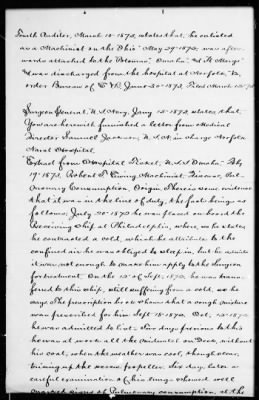 Fourth Auditor, March 15-1873, states, that, he enlisted
as a Machinist on the Ohio May 29-1872; was after-
wards attached to the Potomac, Omaha &
was discharged from the hospital at Norfolk, Va,
order Bureau of June 30-1873,
Surgeon General, U.S. Navy, Jany. 15-1873, states, that,
You are herewith furnished a letter from Medical
Director Samuel Jackson, U.S.N. in charge Norfolk
Naval Hospital.
Extract from Hospital Ticket, U.S.S. Omaha, Feby
19-1873, Robert Ewing, Machinist, Disease, Pul-
monary Consumption, Origin, There is some evidence
that it was in the line of duty, the facts being as
follows; July 30-1872 he was placed on board the
Receiving Ship at Philadelphia, where, as he states
he contracted a cold, which he attributes to the
confined air he was obliged to sleep in, but he admits
it was not enough to make him apply to the Surgeon
for treatment. On the 12 of Sept, 1872, he was trans-
ferred to this ship, still suffering from a cold, as he
says. The prescription book shows that a cough mixture
was prescribed for him Sept 18-1872. Oct. 13-1872
he was admitted to list. Six days previous to this
he was at work all the on Deck, without
his coat, when the weather was cool, though clear,
fixing up the screw propeller. Six days later a
careful examination of his lungs showed well
marked signs of Pulmonary consumption, at the